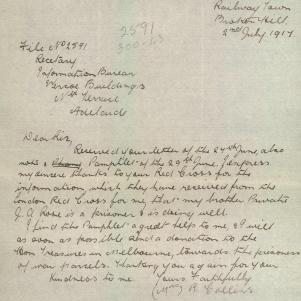 Railway Town
Broken Hill.
2nd July 1917.
2591
300-
File No 2591
Information Bureau
Buildings
Nth Terrace
Adelaide
Dear Sir,
Received your letter of the 27th June, also
Pamphlet of the 29th June. I express
my sincere thanks to your Red Cross for the
information, which they have received from the
London Red Cross for me, that my brother Private
J. A. Rose is a prisoner & is doing well.
I find the Pamphlet a great help to me & I will
as soon as possible send a donation to the
Hon Treasurer in Melbourne, towards the prisoners
of war parcels. Thanking you again for your
kindness to me. Yours Faithfully
(Mrs) Collins